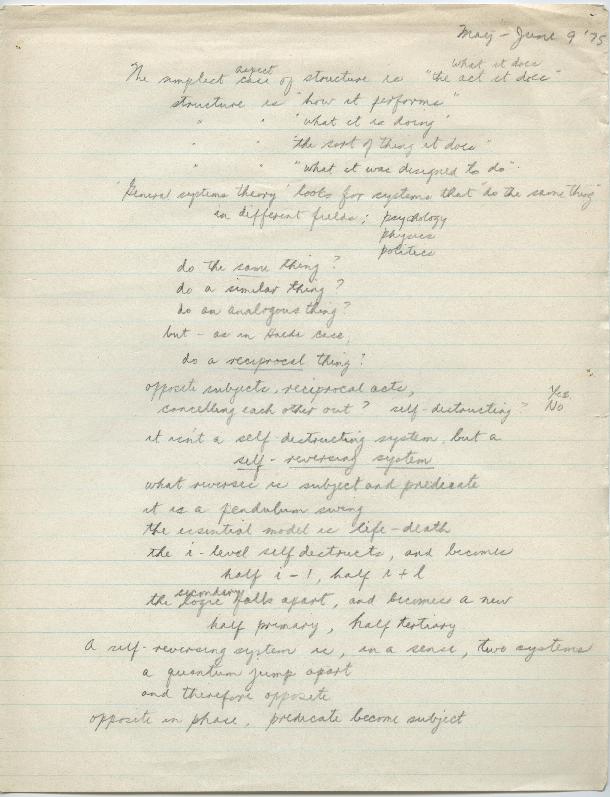 May - June 9 '75
what it does
The simplest aspect case of structure is "the act it does"
structure is "how it performs"
" " "what it is doing"
" " "the sort of thing it does"
" " "what it was designed to do".
"General systems theory" looks for systems that "do the same thing"
in different fields; psychology
physics
politics
do the same thing?
do a similar thing?
do an analogous thing?
but - as in case,
do a reciprocal thing?
opposite subjects, reciprocal acts, Yes.
cancelling each other out? self-destructing? No
it isn't a self destructing system, but a
self-reversing system
what reverses is subject and predicate
it is a pendulum swing
the essential model is life-death
the i-level self destructs, and becomes
half i-1, half i+1
secondary
the logic falls apart, and becomes a new
half primary, half tertiary
A self-reversing system is, in a sense, two systems
a quantum jump apart
and therefore opposite
opposite in phase, predicate become subject